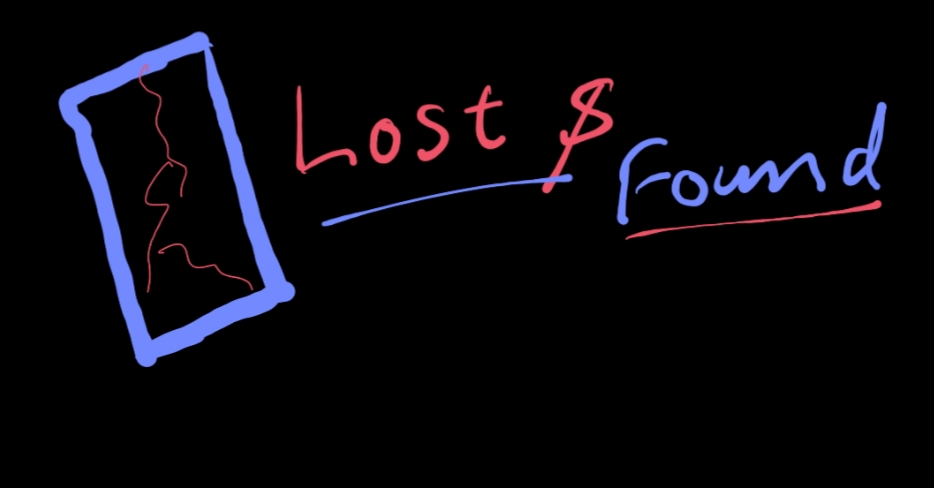 Lost & Found